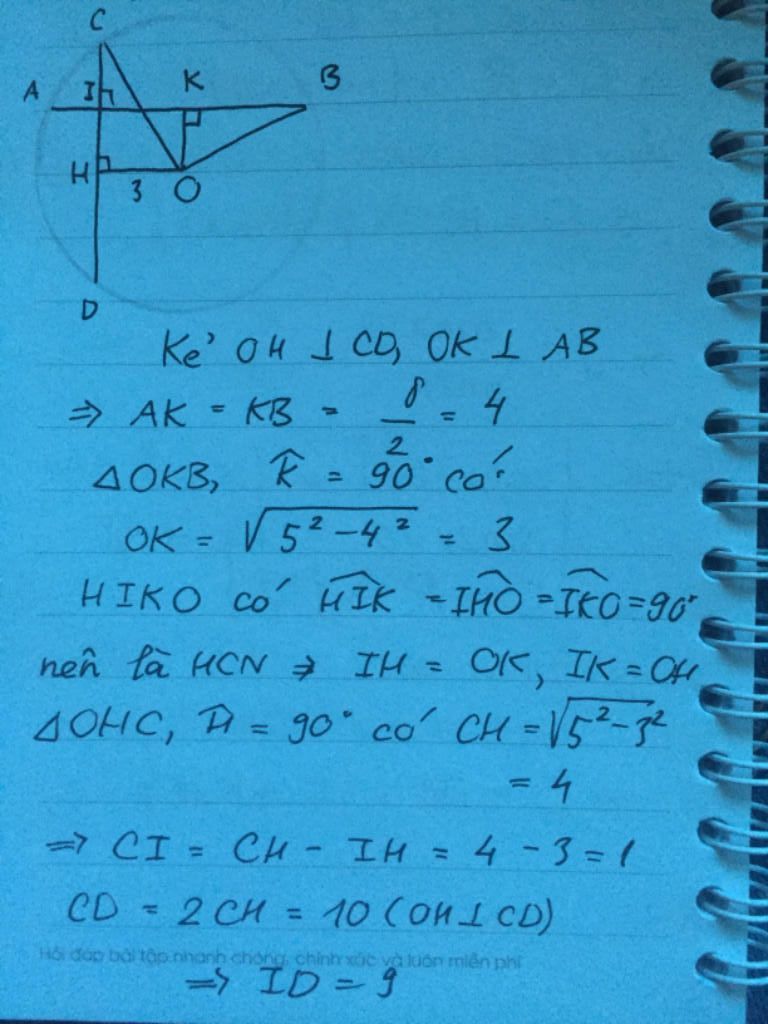 C
A I K B
H 3 O
D
Kẻ OH ⊥ CD, OK ⊥ AB
⇒ AK = KB = 8/2 = 4
△OKB, K̂ = 90° có
OK = √(5² - 4²) = 3
HIKO có HIK̂ = IHÔ = IKÔ = 90°
nên là HCN ⇒ IH = OK, IK = OH
△OHC, Ĥ = 90° có CH = √(5² - 3²)
= 4
⇒ CI = CH - IH = 4 - 3 = 1
CD = 2CH = 10 (OH ⊥ CD)
Hỏi đáp bài tập nhanh chóng, chính xác và luôn miễn phí
⇒ ID = 9